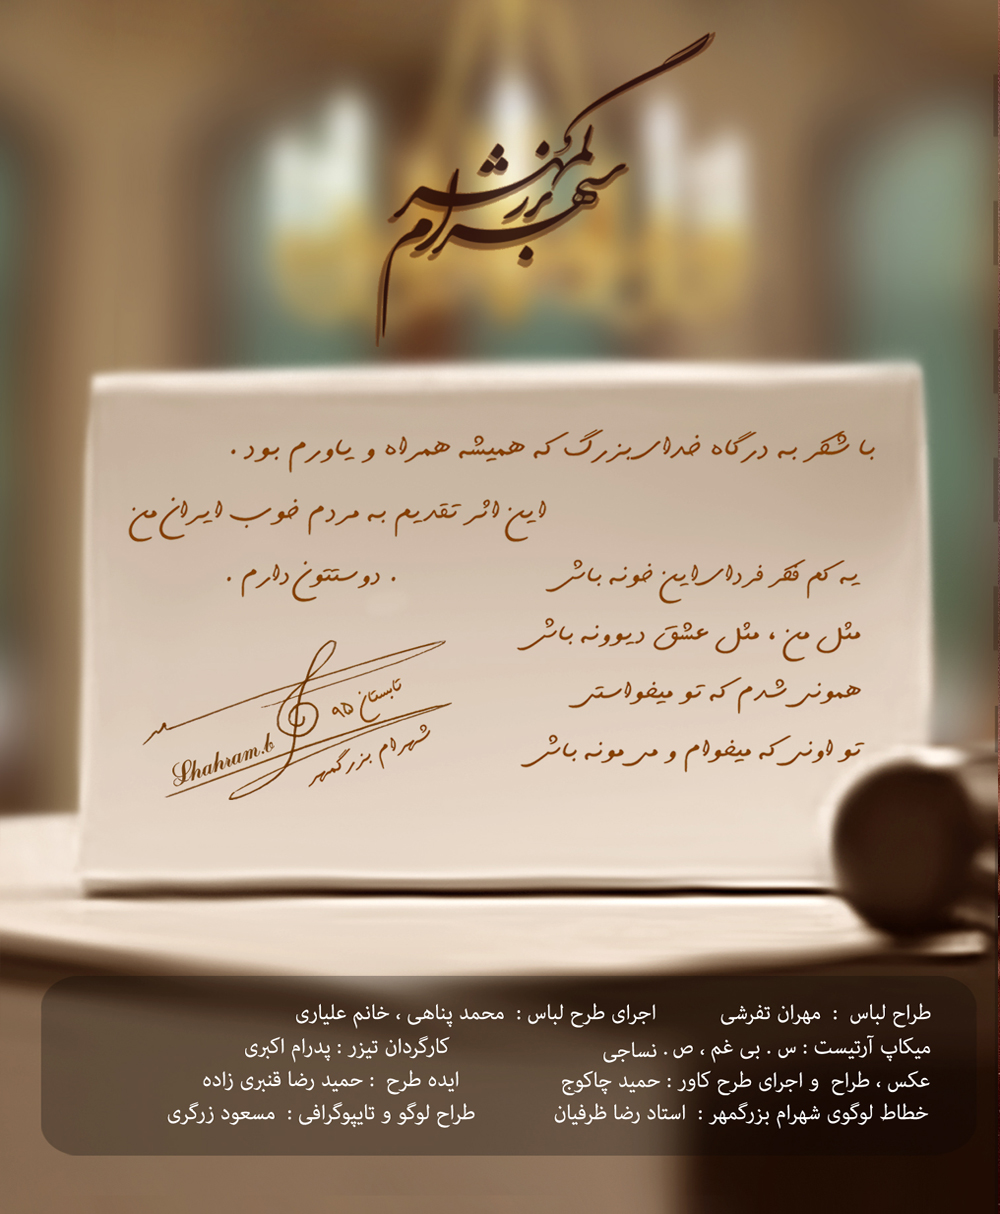 شهرام بزرگمهر
با شکر به درگاه خدای بزرگ که همیشه همراه و یاورم بود .
این اثر تقدیم به مردم خوب ایران من
. دوستتون دارم .
یه کم فکر فردای این خونه باش
مثل من ، مثل عشق دیوونه باش
همونی شدم که تو میخواستی
تو اونی که میخوام و می مونه باش
تابستان ۹۵
Shahram.b
شهرام بزرگمهر
طراح لباس : مهران تفرشی اجرای طرح لباس : محمد پناهی ، خانم علیاری
میکاپ آرتیست : س . بی غم ، ص . نساجی کارگردان تیزر : پدرام اکبری
عکس ، طراح و اجرای طرح کاور : حمید چاکوج ایده طرح : حمید رضا قنبری زاده
خطاط لوگوی شهرام بزرگمهر : استاد رضا ظرفیان طراح لوگو و تایپوگرافی : مسعود زرگری